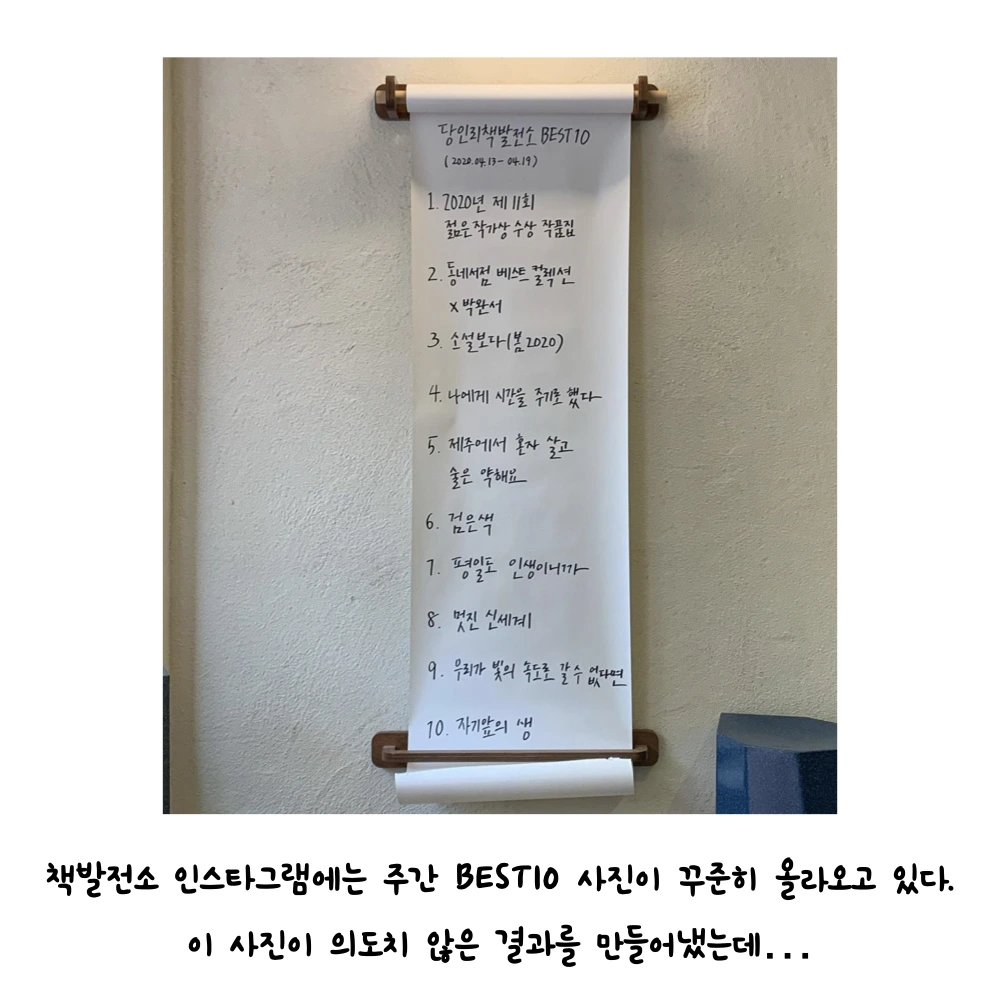 당인리책발전소 BEST10
(2020.04.13 - 04.19)
1. 2020년 제11회
젊은작가상 수상 작품집
2. 동네서점 베스트 컬렉션
x 박완서
3. 소설보다(봄 2020)
4. 나에게 시간을 주기로 했다
5. 제주에서 혼자 살고
술은 약해요
6. 검은색
7. 평일도 인생이니까
8. 멋진 신세계
9. 우리가 빛의 속도로 갈 수 없다면
10. 자기앞의 생
책발전소 인스타그램에는 주간 BEST10 사진이 꾸준히 올라오고 있다.
이 사진이 의도치 않은 결과를 만들어냈는데...